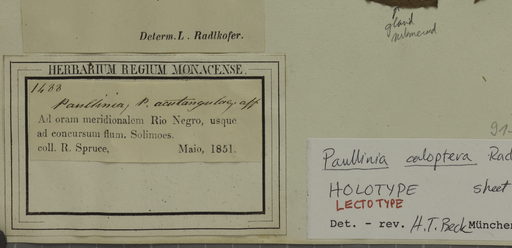 Determ. L. Radlkofer.
gland
HERBARIUM REGIUM MONACENSE.
1488
Paullinia, P. acutangulae, aff
Ad oram meridionalem Rio Negro, usque
ad concursum flum. Solimoes.
coll. R. Spruce, Maio, 1851.
91-
Paullinia caloptera Rad
HOLOTYPE sheet
LECTOTYPE
Det. - rev. H.T. Beck München